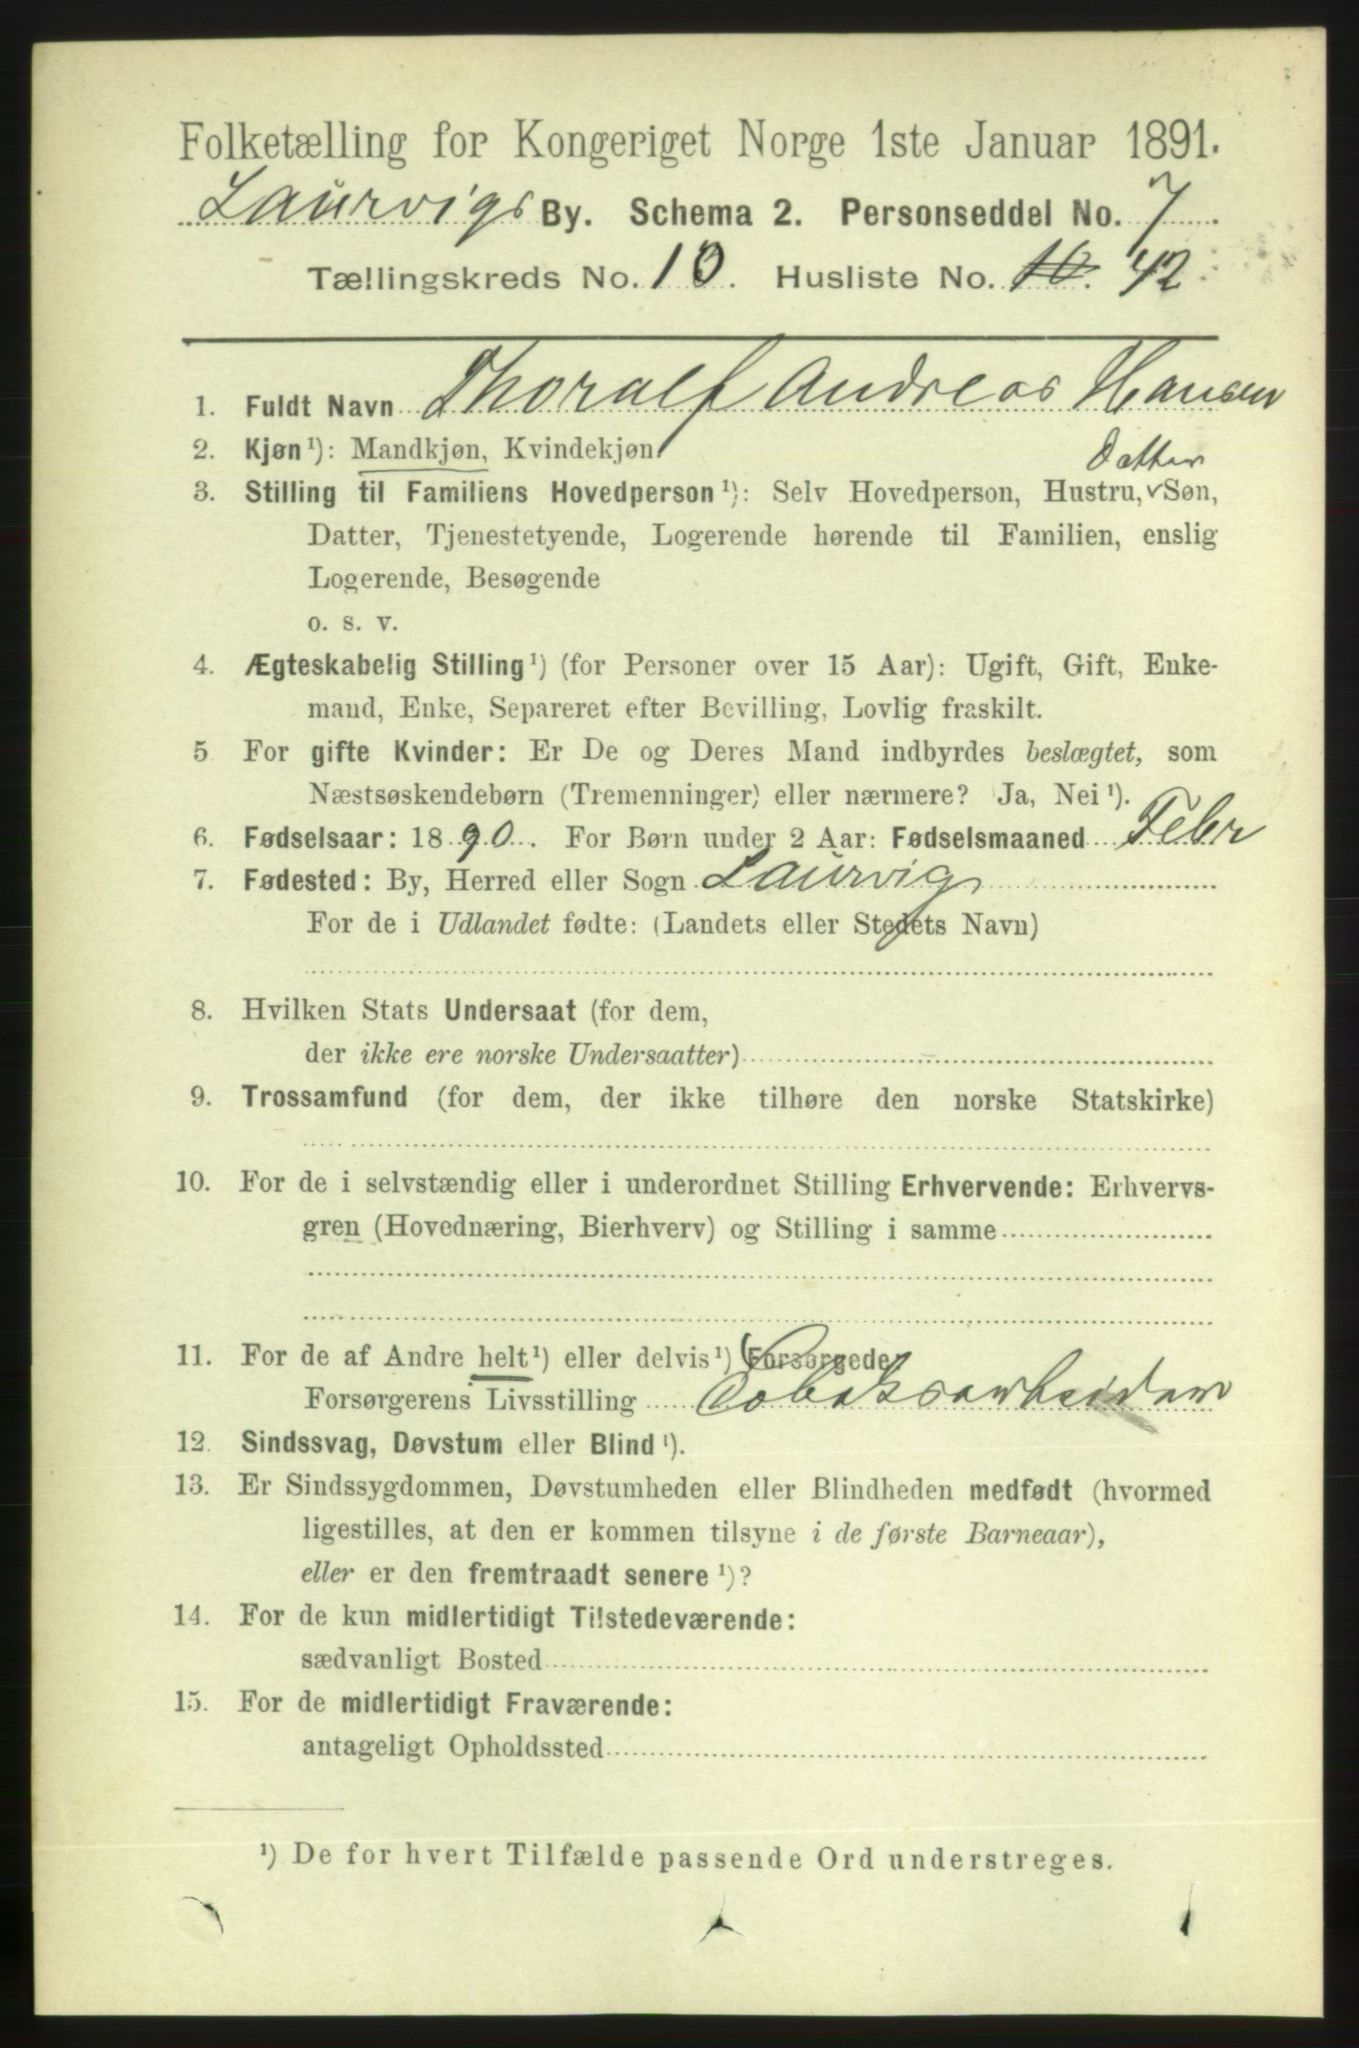 Folketælling for Kongeriget Norge 1ste Januar 1891.
Laurvigs By. Schema 2. Personseddel No. 7
Tællingskreds No. 10. Husliste No. 10. 42
1. Fuldt Navn Thoralf Andreas Hansen
2. Kjøn¹): Mandkjøn, Kvindekjøn
Datter
3. Stilling til Familiens Hovedperson¹): Selv Hovedperson, Hustru, Søn,
Datter, Tjenestetyende, Logerende hørende til Familien, enslig
Logerende, Besøgende
o. s. v.
4. Ægteskabelig Stilling¹) (for Personer over 15 Aar): Ugift, Gift, Enke-
mand, Enke, Separeret efter Bevilling, Lovlig fraskilt.
5 For gifte Kvinder: Er De og Deres Mand indbyrdes beslægtet, som
Næstsøskendebørn (Tremenninger) eller nærmere? Ja, Nei¹).
6. Fødselsaar: 1890. For Børn under 2 Aar: Fødselsmaaned Febr
7. Fødested: By, Herred eller Sogn Laurvig
For de i Udlandet fødte: (Landets eller Stedets Navn)
8. Hvilken Stats Undersaat (for dem,
der ikke ere norske Undersaatter)
9. Trossamfund (for dem, der ikke tilhøre den norske Statskirke)
10. For de i selvstændig eller i underordnet Stilling Erhvervende: Erhvervs-
gren (Hovednæring, Bierhverv) og Stilling i samme
11. For de af Andre helt¹) eller delvis¹) Forsørgede:
Forsørgerens Livsstilling Tobaksarbeider
12. Sindssvag, Døvstum eller Blind¹).
13. Er Sindssygdommen, Døvstumheden eller Blindheden medfødt (hvormed
ligestilles, at den er kommen tilsyne i de første Barneaar),
eller er den fremtraadt senere¹)?
14. For de kun midlertidigt Tilstedeværende:
sædvanligt Bosted
15. For de midlertidigt Fraværende:
antageligt Opholdssted
¹) De for hvert Tilfælde passende Ord understreges.